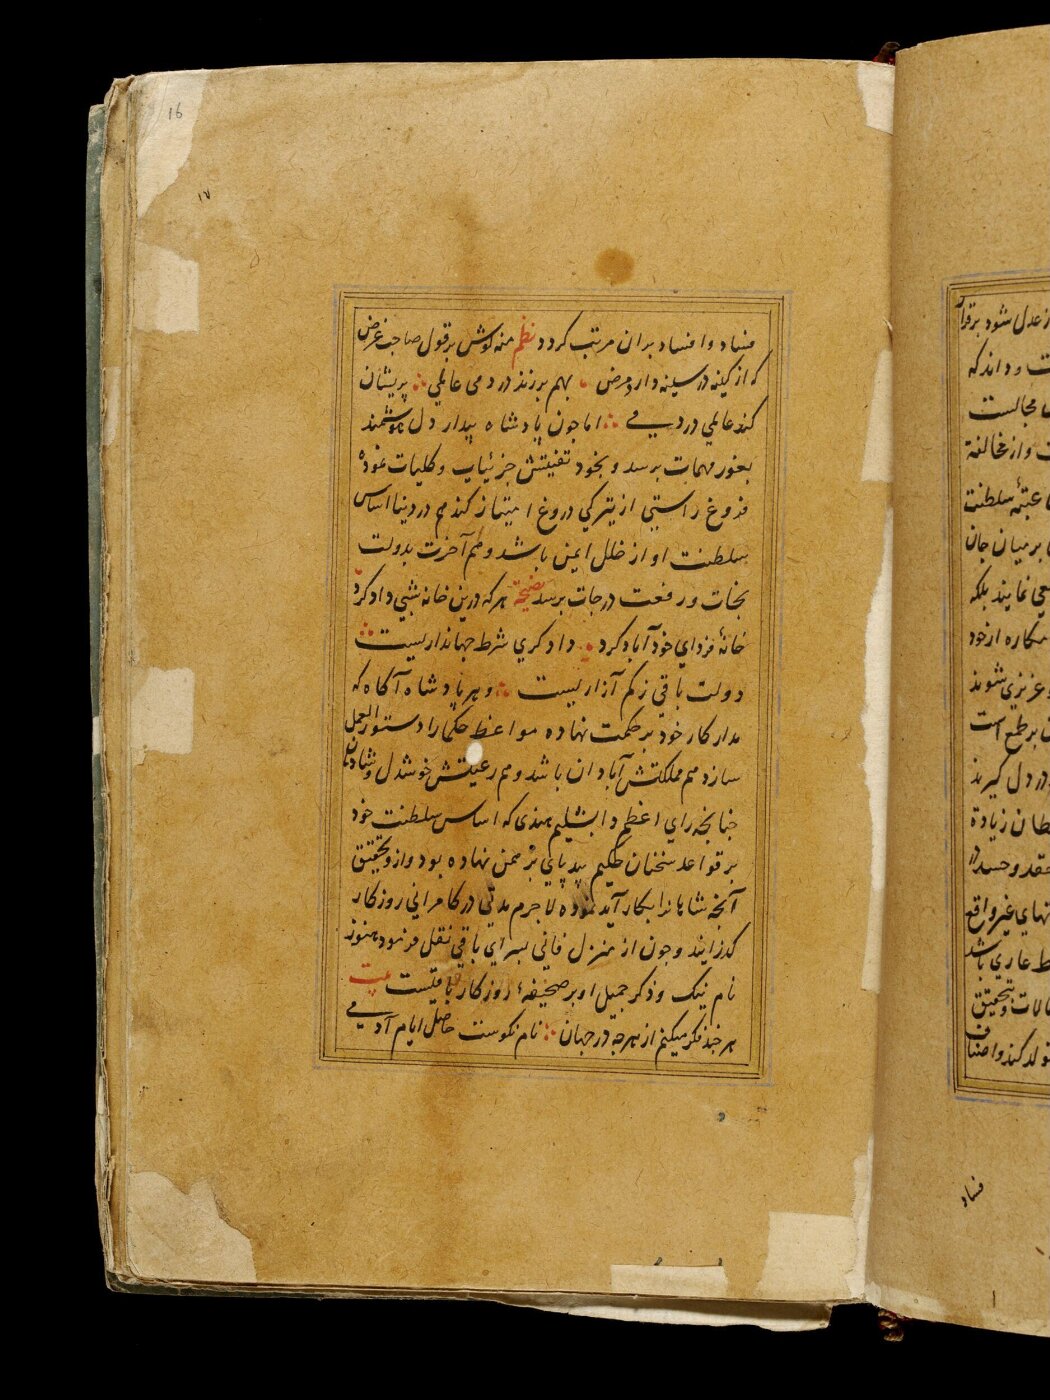 16
١٧
فساد و افساد بران مرتب کردد نظم منه کوش بر قول صاحب غرض
که از کینه در سینه دارد مرض بهم برزند در دمی عالمی پریشان
کند عالمی در دمی اما چون پادشاه بیدار دل هوشمند
بغور مهمات برسد و بخود تفتیش جزئیات و کلیات نموده
فروغ راستی از تیرکی دروغ امتیاز کند هم در دنیا اساس
سلطنت او از خلل ایمن باشد و هم آخرت بدولت
نجات و رفعت درجات برسد هر که درین خانه شبی داد کرد
خانۀ فردای خود آباد کرد داد کری شرط جهانداریست
دولت باقی ز کم آزاریست و هر پادشاه آکاه که
مدار کار خود بر حکمت نهاده مواعظ حکما را دستور العمل
سازد هم مملکتش آبادان باشد و هم رعیتش خوشدل و شادمان
چنانچه رای اعظم دابشلیم هندی که اساس سلطنت خود
بر قواعد سخنان حکیم بیدپای برهمن نهاده بود و از و تحقیق
آنچه شاهانرا بکار آید نموده لاجرم مدتی در کامرانی روزکار
کذرانید و چون از منزل فانی بسرای باقی نقل فرمود هنوز
نام نیک و ذکر جمیل او بر صحیفۀ روزکار باقیست بیت
هر چند فکر میکنم از هر چه در جهان نام نکوست حاصل ایام آدمی
از عدل شود بر قرار
ت و داند که
مجالست
ت و از مخالفة
عتبۀ سلطنت
بر میان جان
می نمایند بلکه
مکاره از خود
عزیزی شوند
بر طمع است
در دل کیرند
طان زیادة
حقد و حسد
نهای غیر واقع
ط عاری باشد
حالات و تحقیق
تولد کند و اصناف
فساد